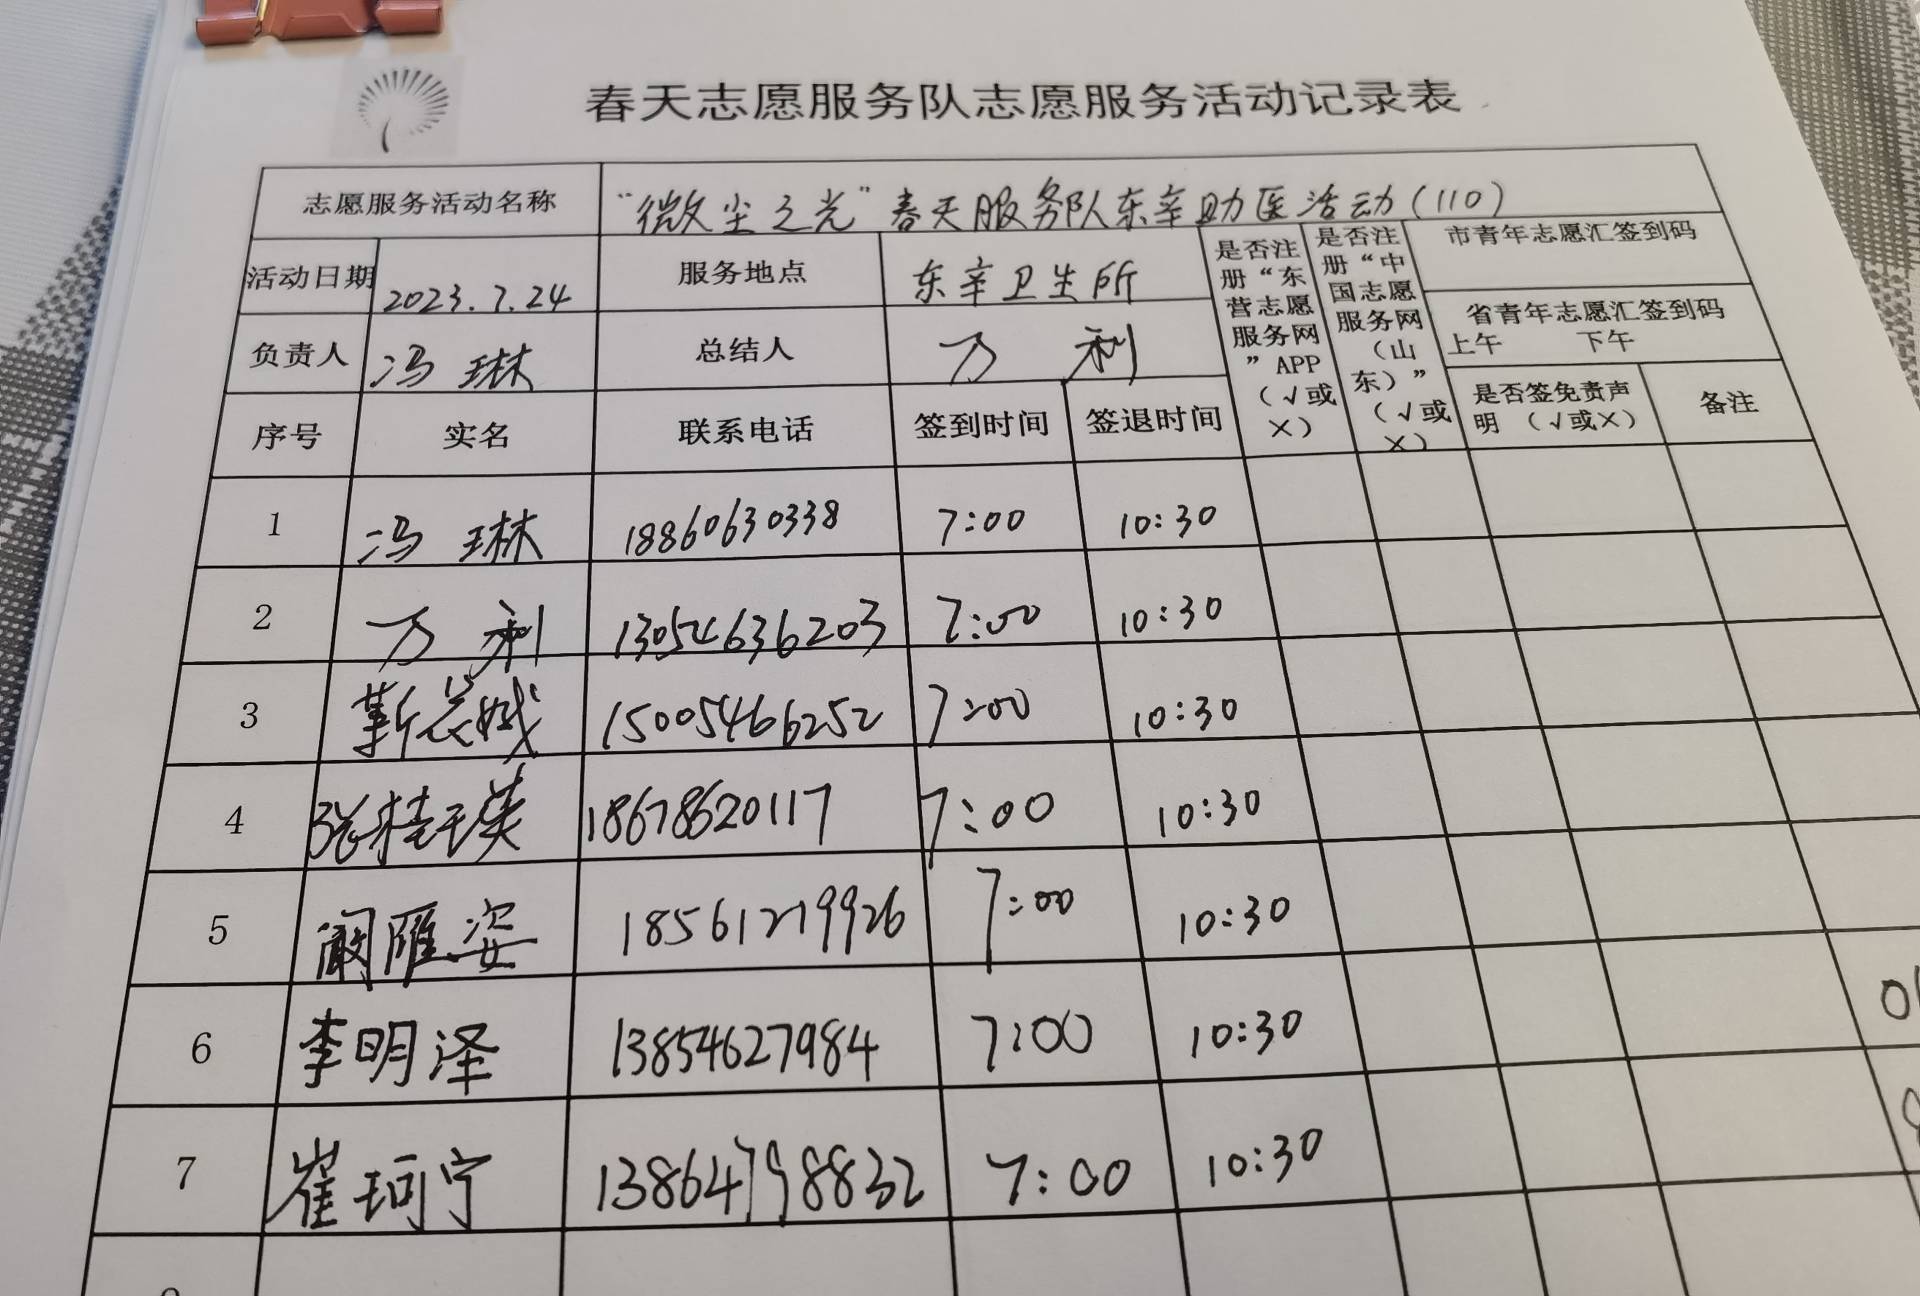 春天志愿服务队志愿服务活动记录表
志愿服务活动名称 “微尘之光”春天服务队东辛助医活动(110)
活动日期 2023.7.24 服务地点 东辛卫生所
负责人 冯琳 总结人 万利
是否注册“东营志愿服务网”APP（√或×）
是否注册“中国志愿服务网（山东）”（√或×）
市青年志愿汇签到码
省青年志愿汇签到码
上午 下午
序号 实名 联系电话 签到时间 签退时间 是否签免责声明（√或×） 备注
1 冯琳 18860630338 7:00 10:30
2 万利 13054636203 7:00 10:30
3 15005466252 7:00 10:30
4 张桂英 18678620117 7:00 10:30
5 阚雁姿 18561219926 7:00 10:30
6 李明泽 13854627984 7:00 10:30
7 崔珂宁 13864798832 7:00 10:30